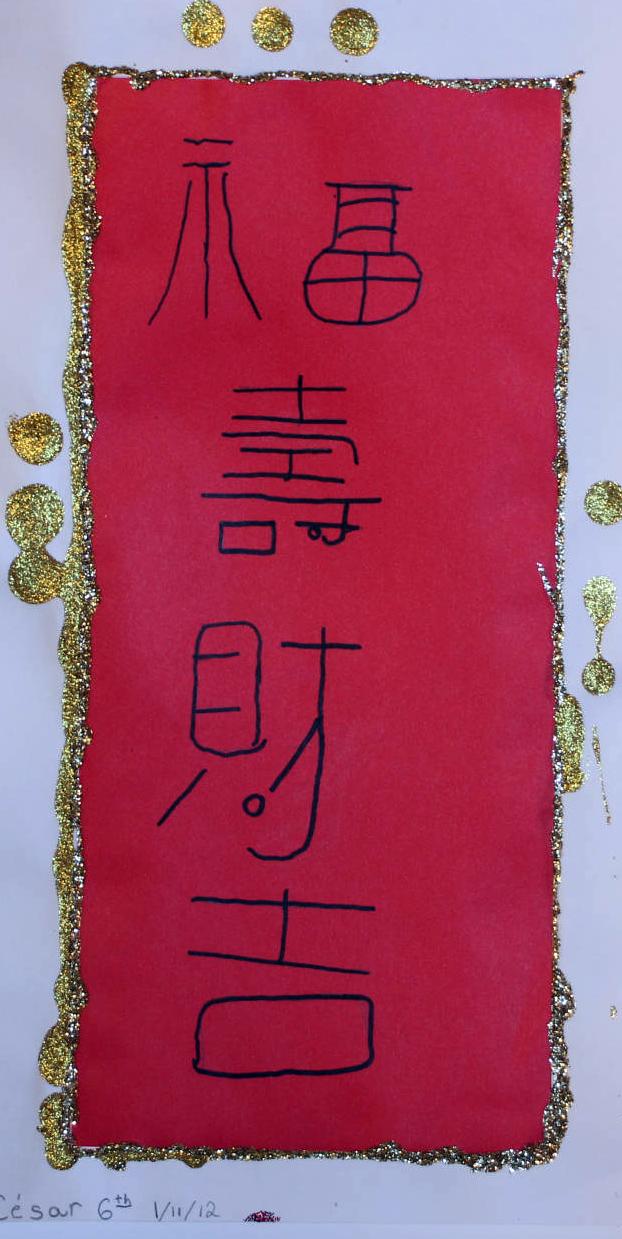 福
壽
財
吉
César 6th 1/11/12